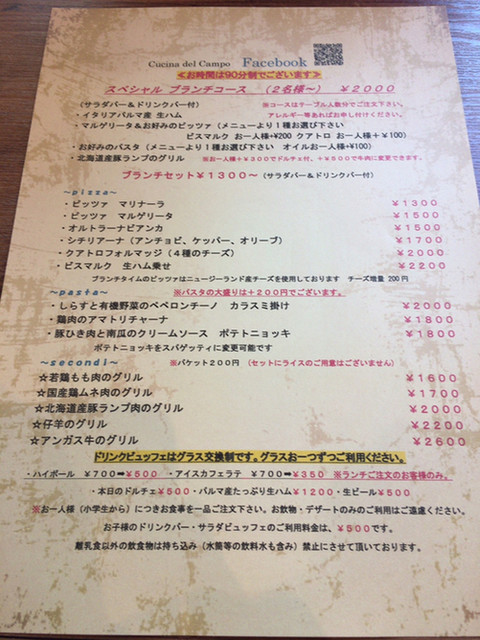 Cucina del Campo Facebook
≪お時間は90分制でございます≫
スペシャル ブランチコース (2名様～) ￥2000
(サラダバー＆ドリンクバー付) ※コースはテーブル人数分でご注文下さい。
・イタリアパルマ産 生ハム アレルギー等あればお申し付けください。
・マルゲリータ＆お好みのピッツァ (メニューより1種お選び下さい
ビスマルク お一人様+¥200 クアトロ お一人様＋￥100)
・お好みのパスタ (メニューより1種お選び下さい オイルお一人様+¥100)
・北海道産豚ランプのグリル ※お一人様＋￥300でドルチェ付、＋￥500で牛肉に変更できます。
ブランチセット￥1300～ (サラダバー＆ドリンクバー付)
～pizza～
・ピッツァ マリナーラ ￥1300
・ピッツァ マルゲリータ ￥1500
・オルトラーナビアンカ ￥1500
・シチリアーナ (アンチョビ、ケッパー、オリーブ) ￥1700
・クアトロフォルマッジ (4種のチーズ) ￥2000
・ビスマルク 生ハム乗せ ￥2200
ブランチタイムのピッツァはニュージーランド産チーズを使用しております チーズ増量 200円
～pasta～ ※パスタの大盛りは＋200円でございます。
・しらすと有機野菜のペペロンチーノ カラスミ掛け ￥2000
・鶏肉のアマトリチャーナ ￥1800
・豚ひき肉と南瓜のクリームソース ポテトニョッキ ￥1800
ポテトニョッキをスパゲッティに変更可能です
～secondi～ ※バケット200円 (セットにライスのご用意はございません)
☆若鶏もも肉のグリル ￥1600
☆国産鶏ムネ肉のグリル ￥1700
☆北海道産豚ランプ肉のグリル ￥2000
☆仔羊のグリル ￥2200
☆アンガス牛のグリル ￥2600
ドリンクビュッフェはグラス交換制です。グラスお一つずつご利用ください。
・ハイボール ￥700➡￥500 ・アイスカフェラテ ￥700➡￥350 ※ランチご注文のお客様のみ。
・本日のドルチェ￥500・パルマ産たっぷり生ハム￥1200・生ビール￥500
※お一人様(小学生から)につきお食事を一品ご注文下さい。お飲物・デザートのみのご利用はご遠慮ください。
お子様のドリンクバー・サラダビュッフェのご利用料金は、￥500です。
離乳食以外の飲食物は持ち込み(水筒等の飲料水も含み)禁止にさせて頂いております。